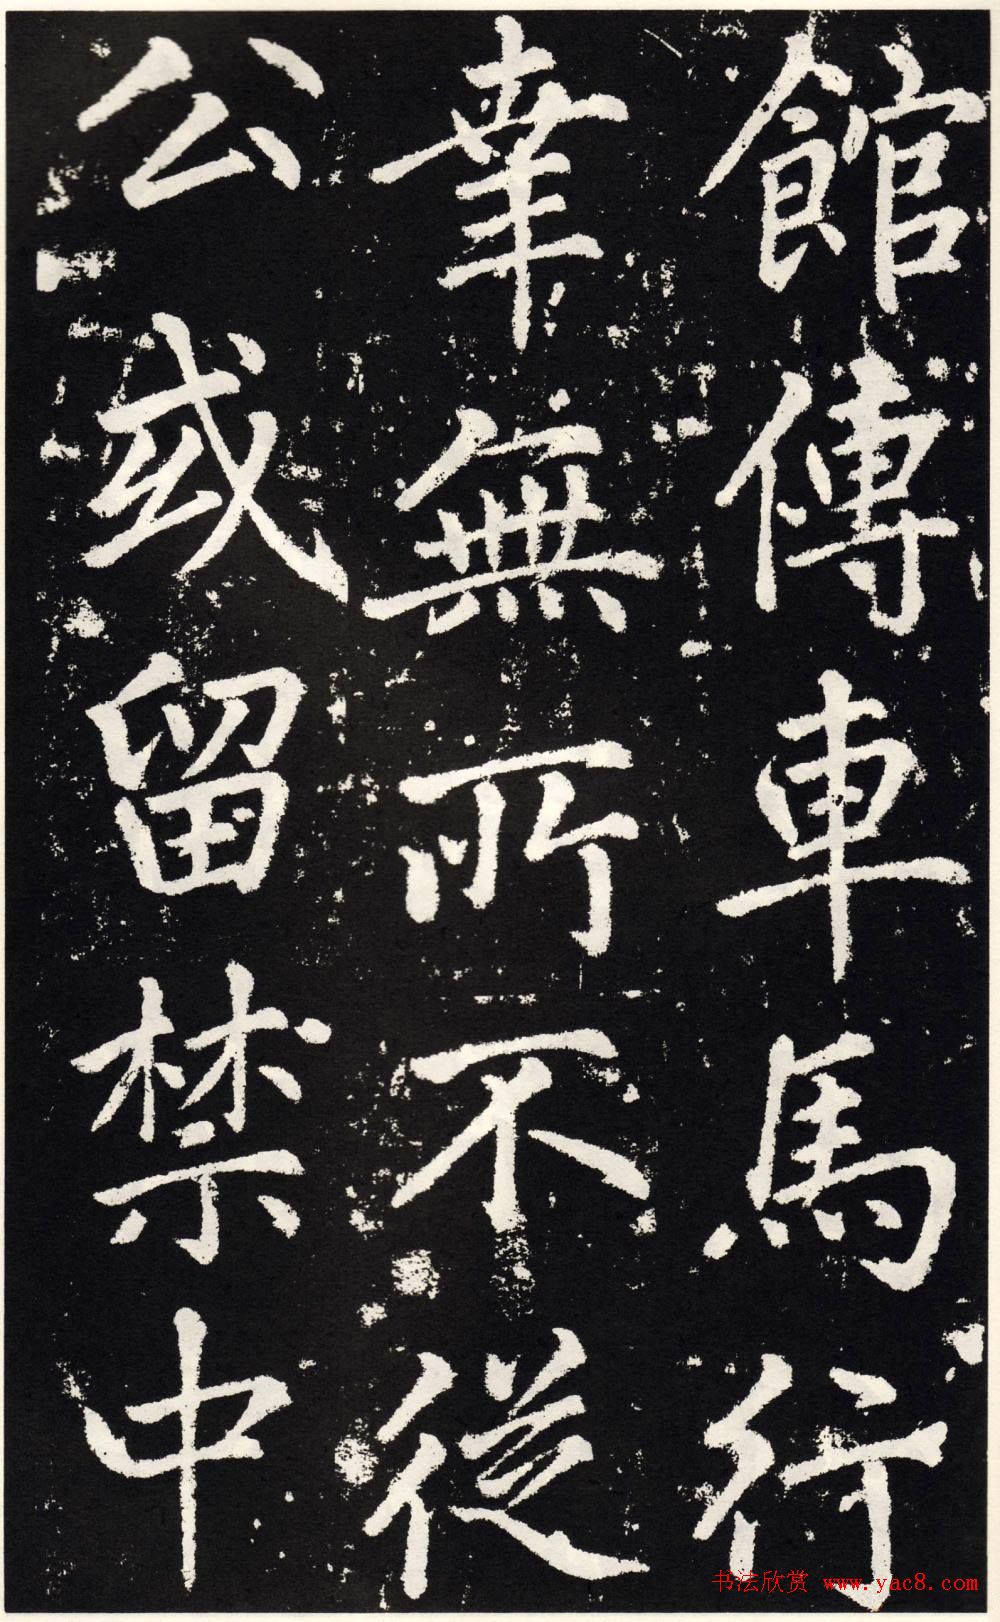 館傳車馬行
幸無所不從
公或留禁中
书法欣赏 www.yac8.com